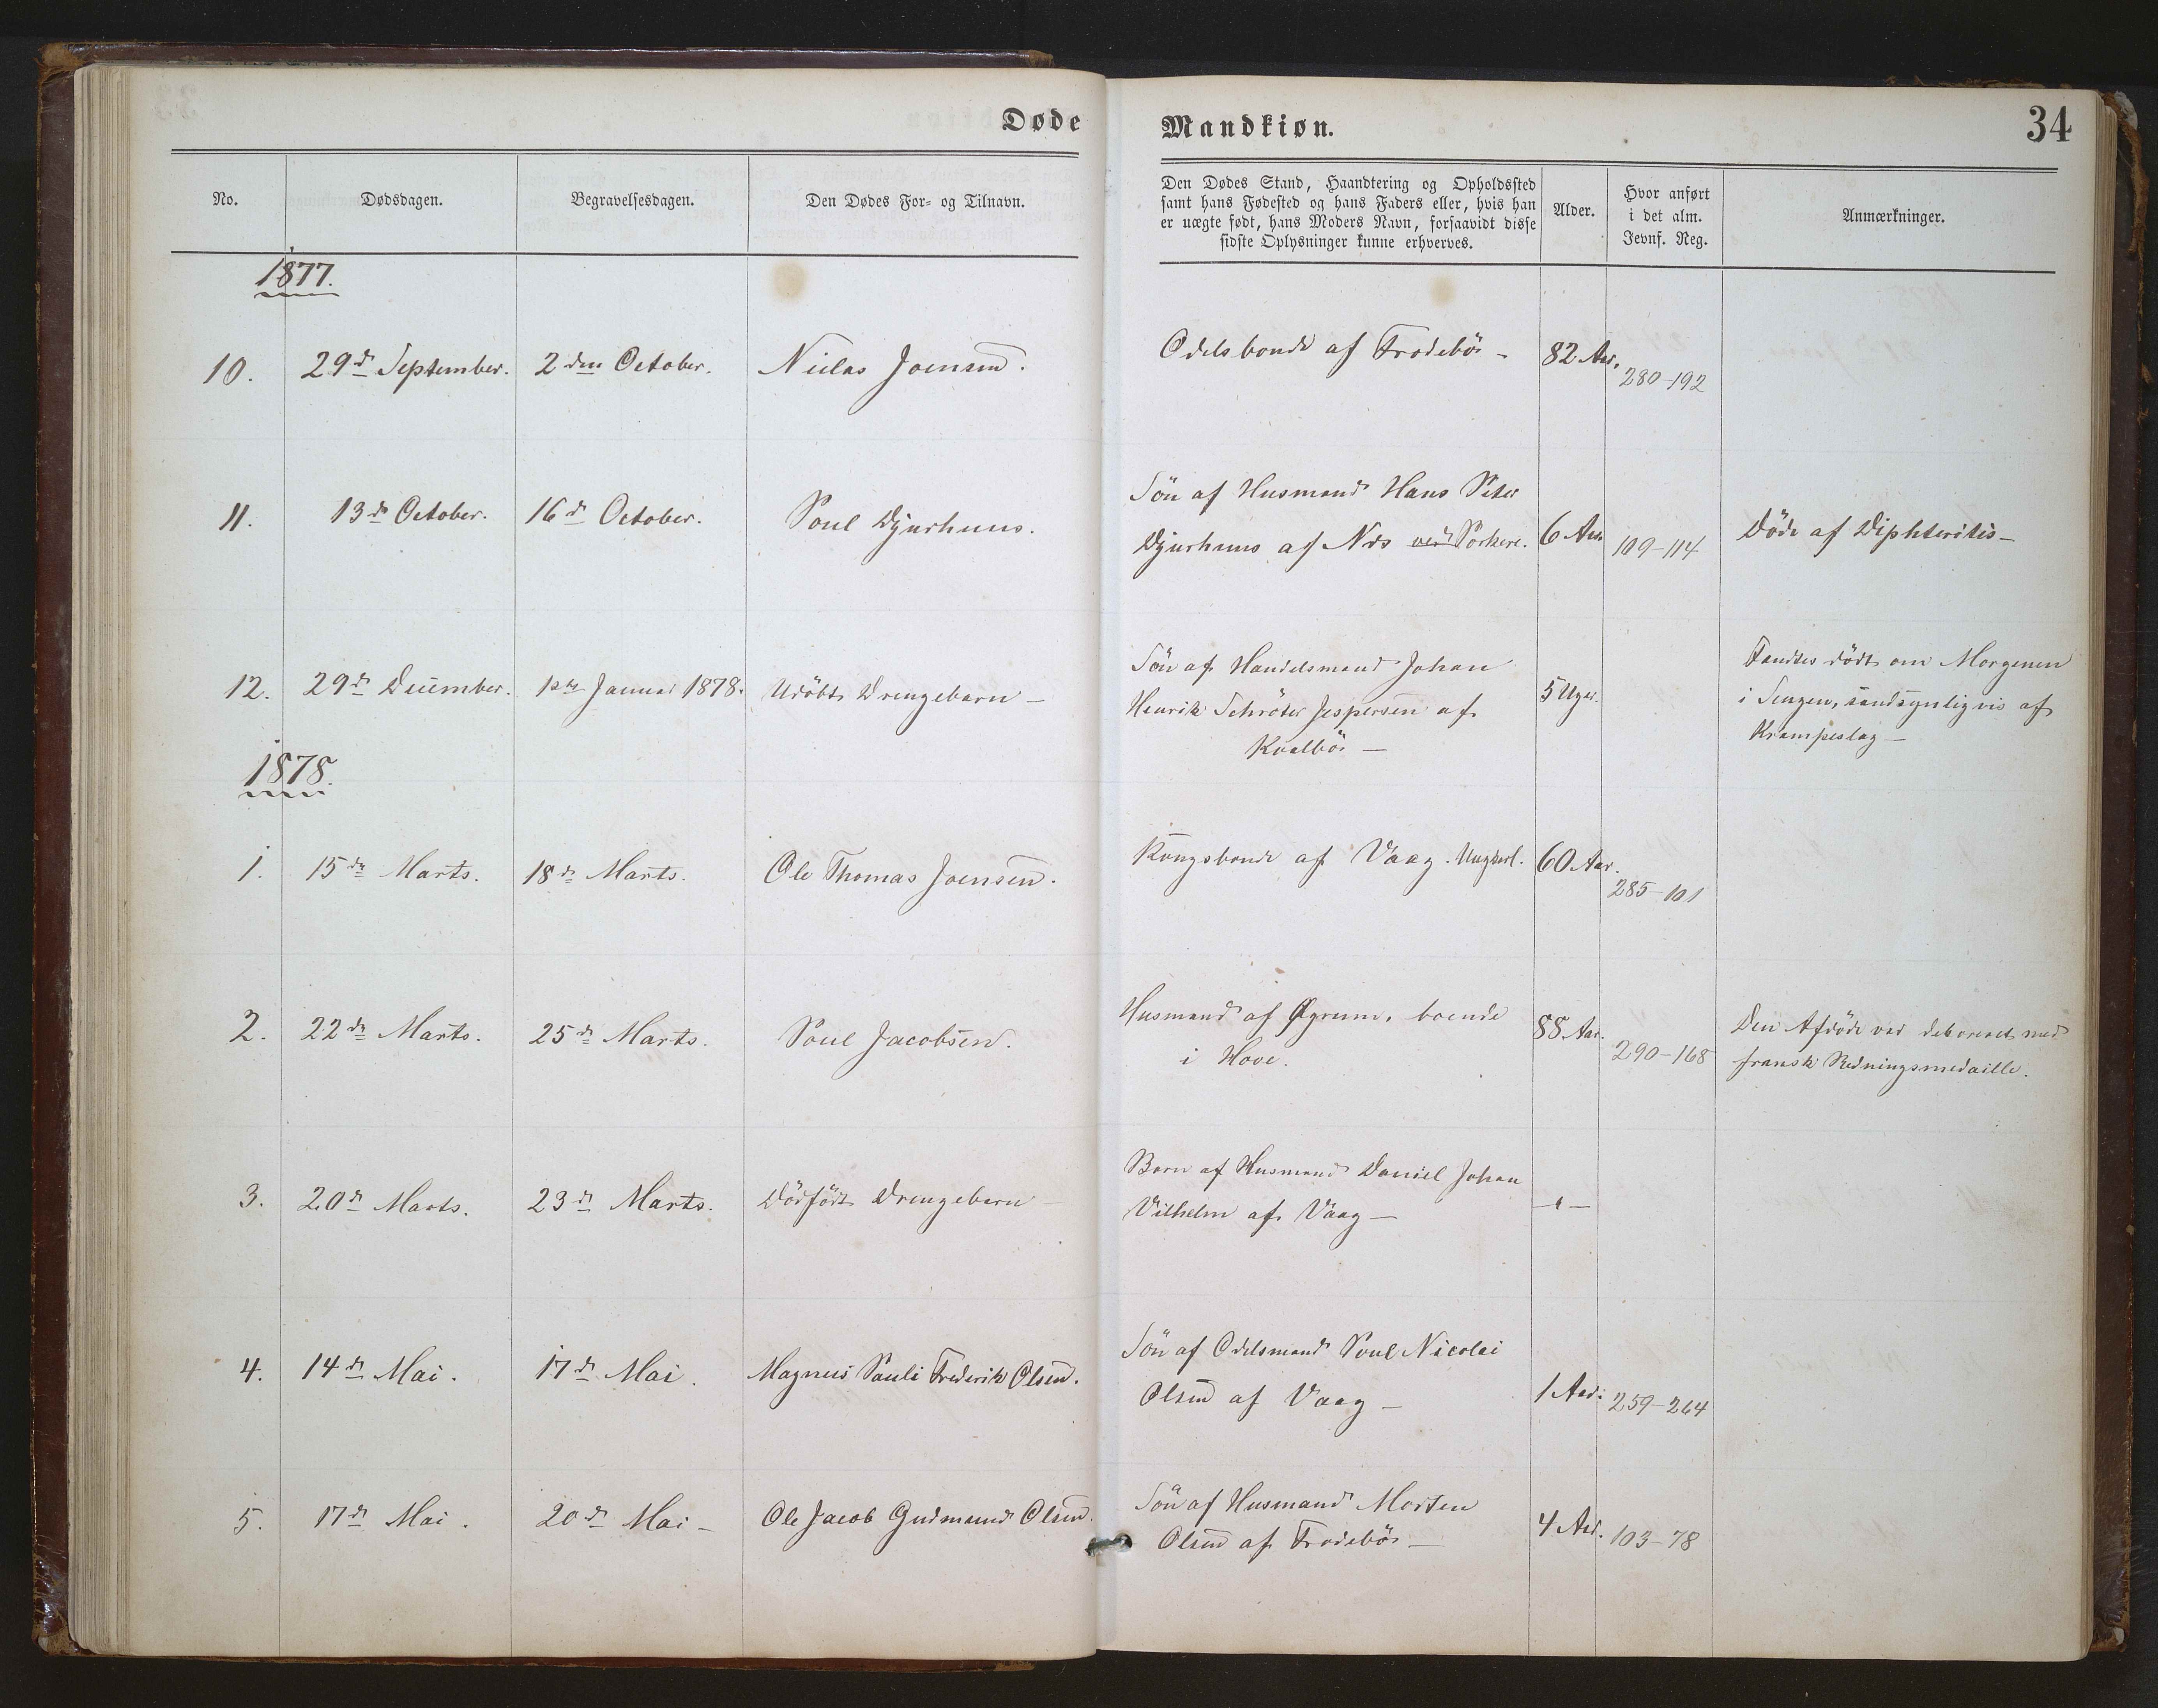 Døde
Mandkiøn.
34
No.
Dødsdagen.
Begravelsesdagen.
Den Dødes For- og Tilnavn.
Den Dødes Stand, Haandtering og Opholdssted
samt hans Fødested og hans Faders eller, hvis han
er uægte født, hans Moders Navn, forsaavidt disse
sidste Oplysninger kunne erhverves.
Alder.
Hvor anført
i det alm.
Jevnf. Reg.
Anmærkninger.
1877.
10.
29de September.
2den October.
Niclas Joensen.
Odelsbonde af Frodebö –
82 Aar.
280–192
11.
13de October.
16de October.
Poul Djurhuus.
Sön af Husmand Hans Peter
Djurhuus af Næs ved Porkere.
6 Aar
109–114
Döde af Diphteritis –
12.
29de December.
1ste Januar 1878.
Udöbt Drengebarn –
Sön af Handelsmand Johan
Henrik Schröter Jespersen af
Kvalbö –
5 Uger.
Fandtes dödt om Morgenen
i Sengen, sandsynligvis af
Krampeslag –
1878.
1.
15de Marts.
18de Marts.
Ole Thomas Joensen.
Kongsbonde af Vaag. Ungkarl.
60 Aar.
285–101
2.
22de Marts.
25de Marts.
Poul Jacobsen.
Husmand af Øgrum, boende
i Hove.
88 Aar.
290–168
Den Afdöde var dekoreret med
fransk Redningsmedaille.
3.
20de Marts.
23de Marts.
Dödfödt Drengebarn –
Barn af Husmand Daniel Johan
Vilhelm af Vaag –
4.
14de Mai.
17de Mai.
Magnus Pauli Frederik Olsen.
Sön af Odelsmand Poul Nicolai
Olsen af Vaag –
1 Aar.
259–264
5.
17de Mai.
20de Mai –
Ole Jacob Gudmund Olsen.
Sön af Husmand Morten
Olsen af Frodebö –
4 Aar.
103–78